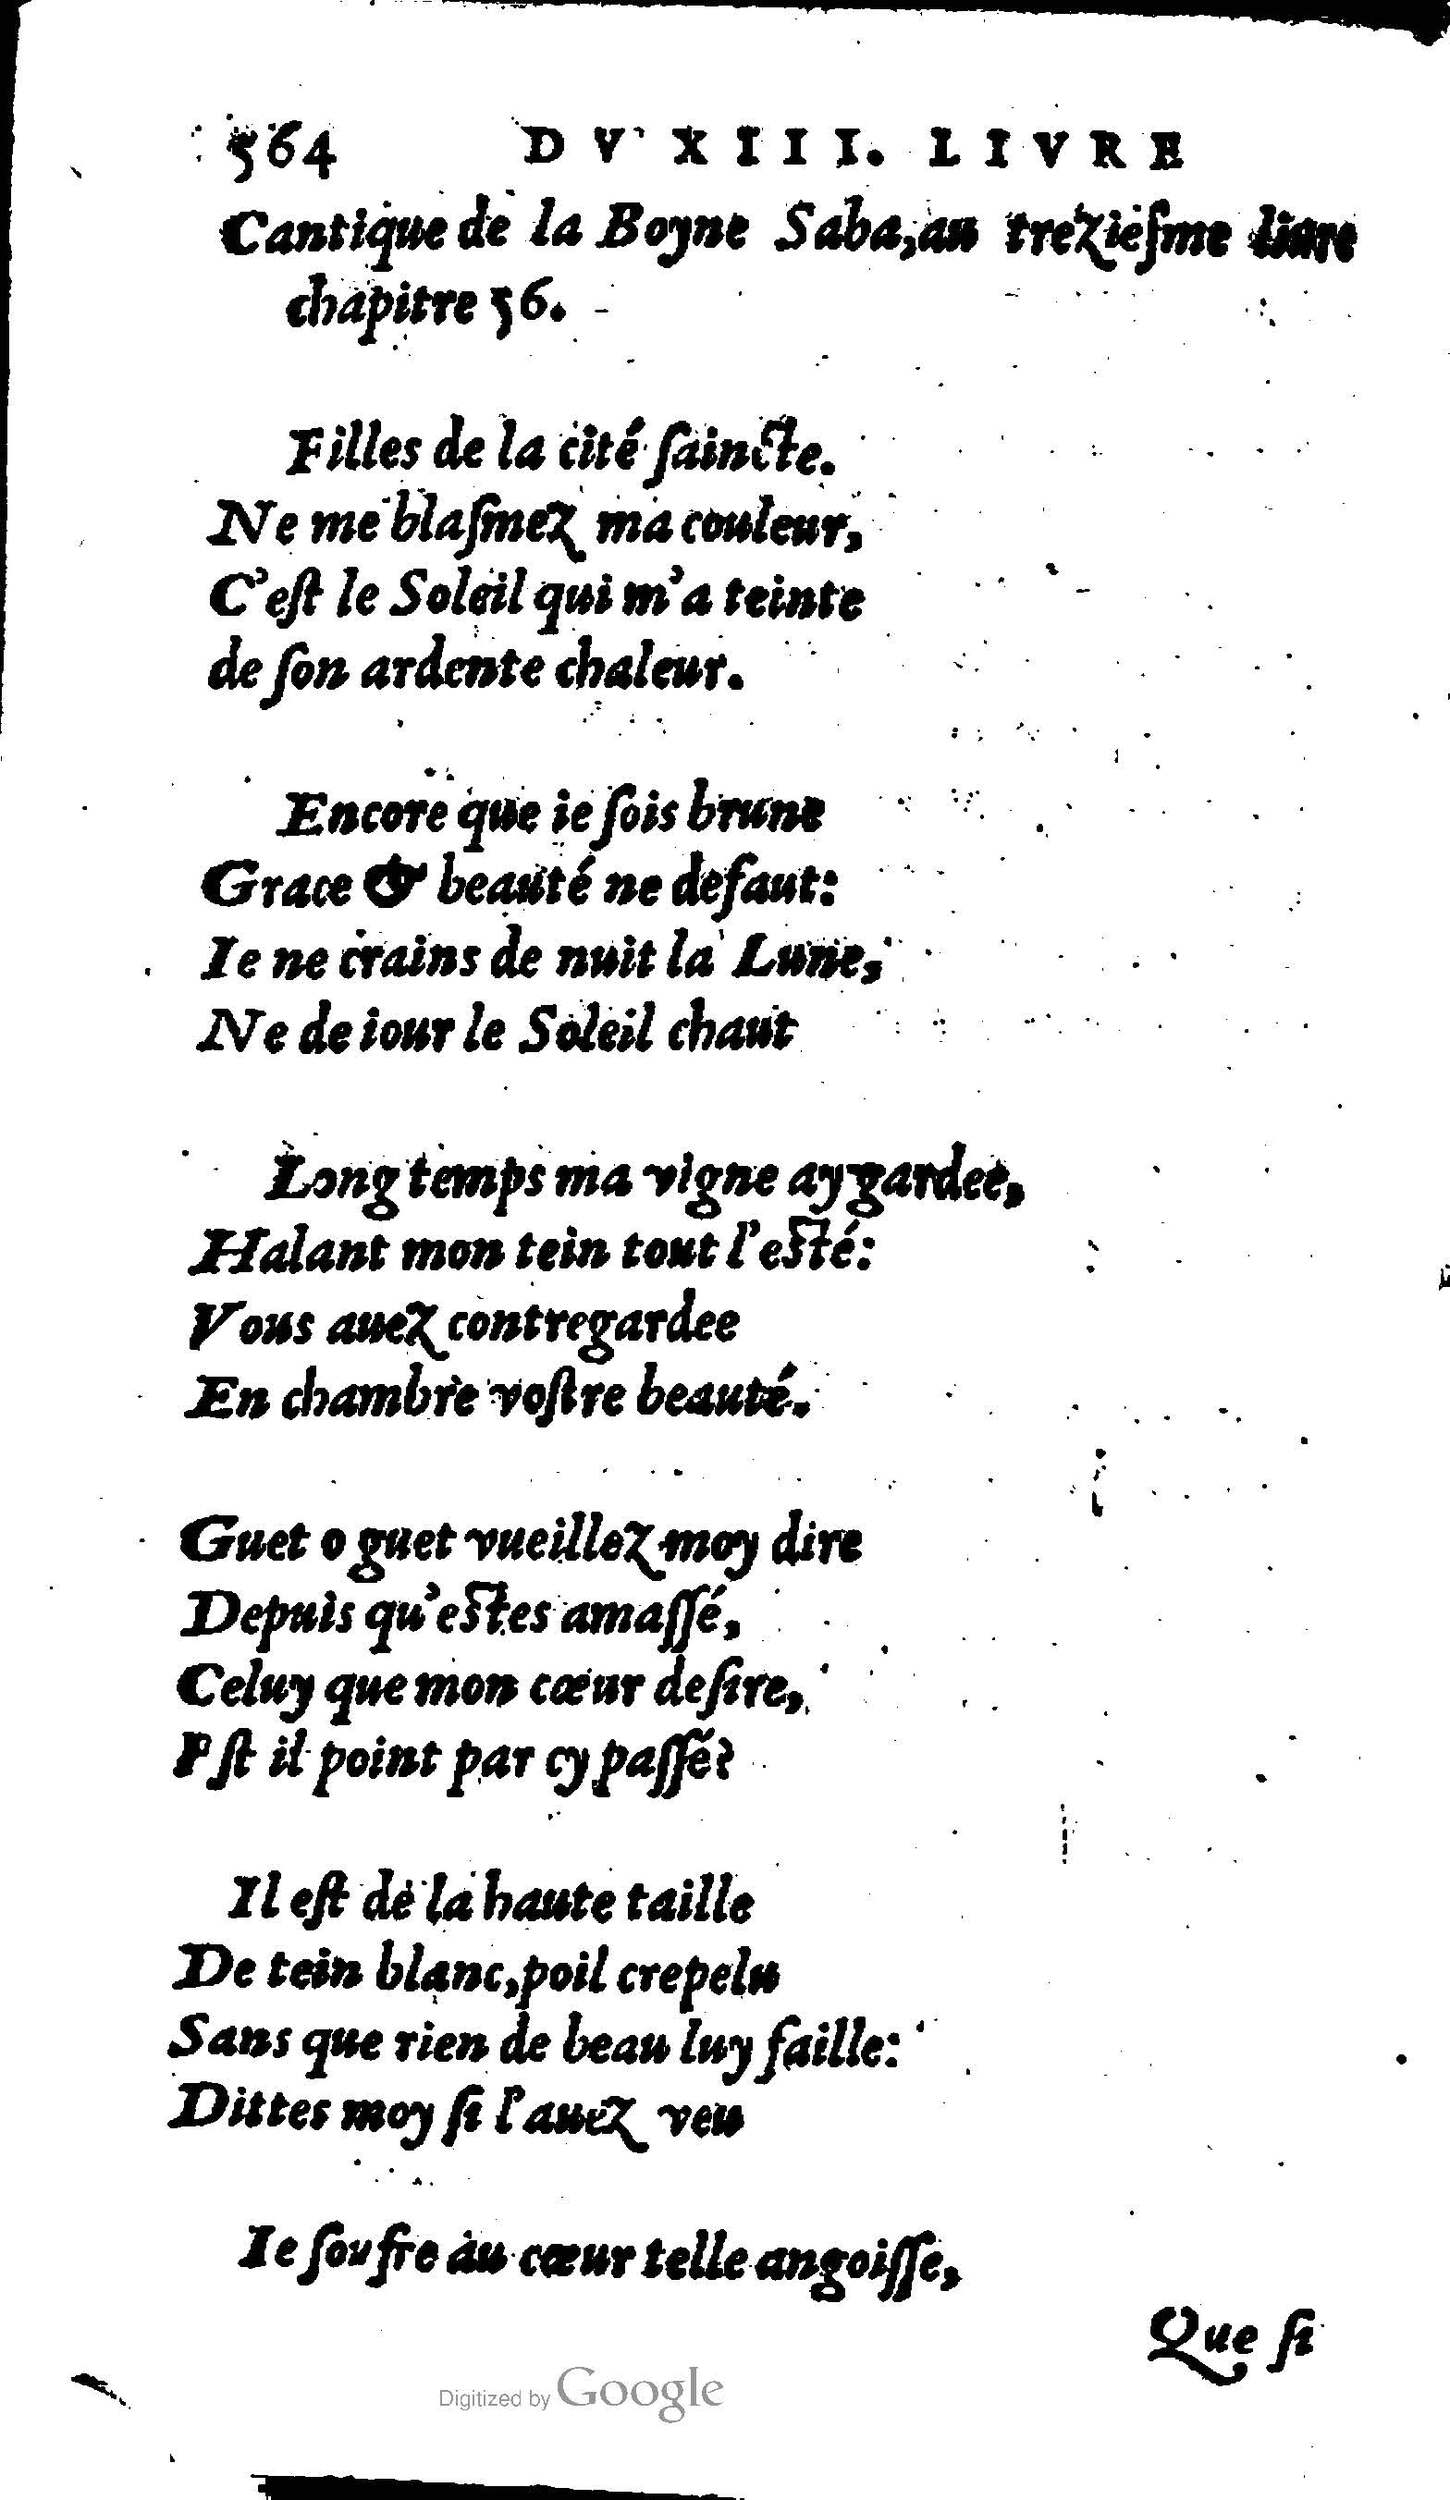 564 DV XIII. LIVRE
Cantique de la Boyne Saba, au treziesme liure
chapitre 56.
Filles de la cité ſaincte.
Ne me blaſmez ma couleur,
C'eſt le Soleil qui m'a teinte
de ſon ardente chaleur.
Encore que ie ſois brune
Grace & beauté ne defaut:
Ie ne crains de nuit la Lune,
Ne de iour le Soleil chaut
Long temps ma vigne ay gardee,
Halant mon tein tout l'eſté:
Vous auez contregardee
En chambre voſtre beauté.
Guet o guet vueillez moy dire
Depuis qu'eſtes amaſſé,
Celuy que mon cœur deſire,
Eſt il point par cy paſſé?
Il eſt de la haute taille
De tein blanc, poil crepelu
Sans que rien de beau luy faille:
Dittes moy ſi l'auez veu
Ie ſoufre au cœur telle angoiſſe,
Que ſi
Digitized by Google